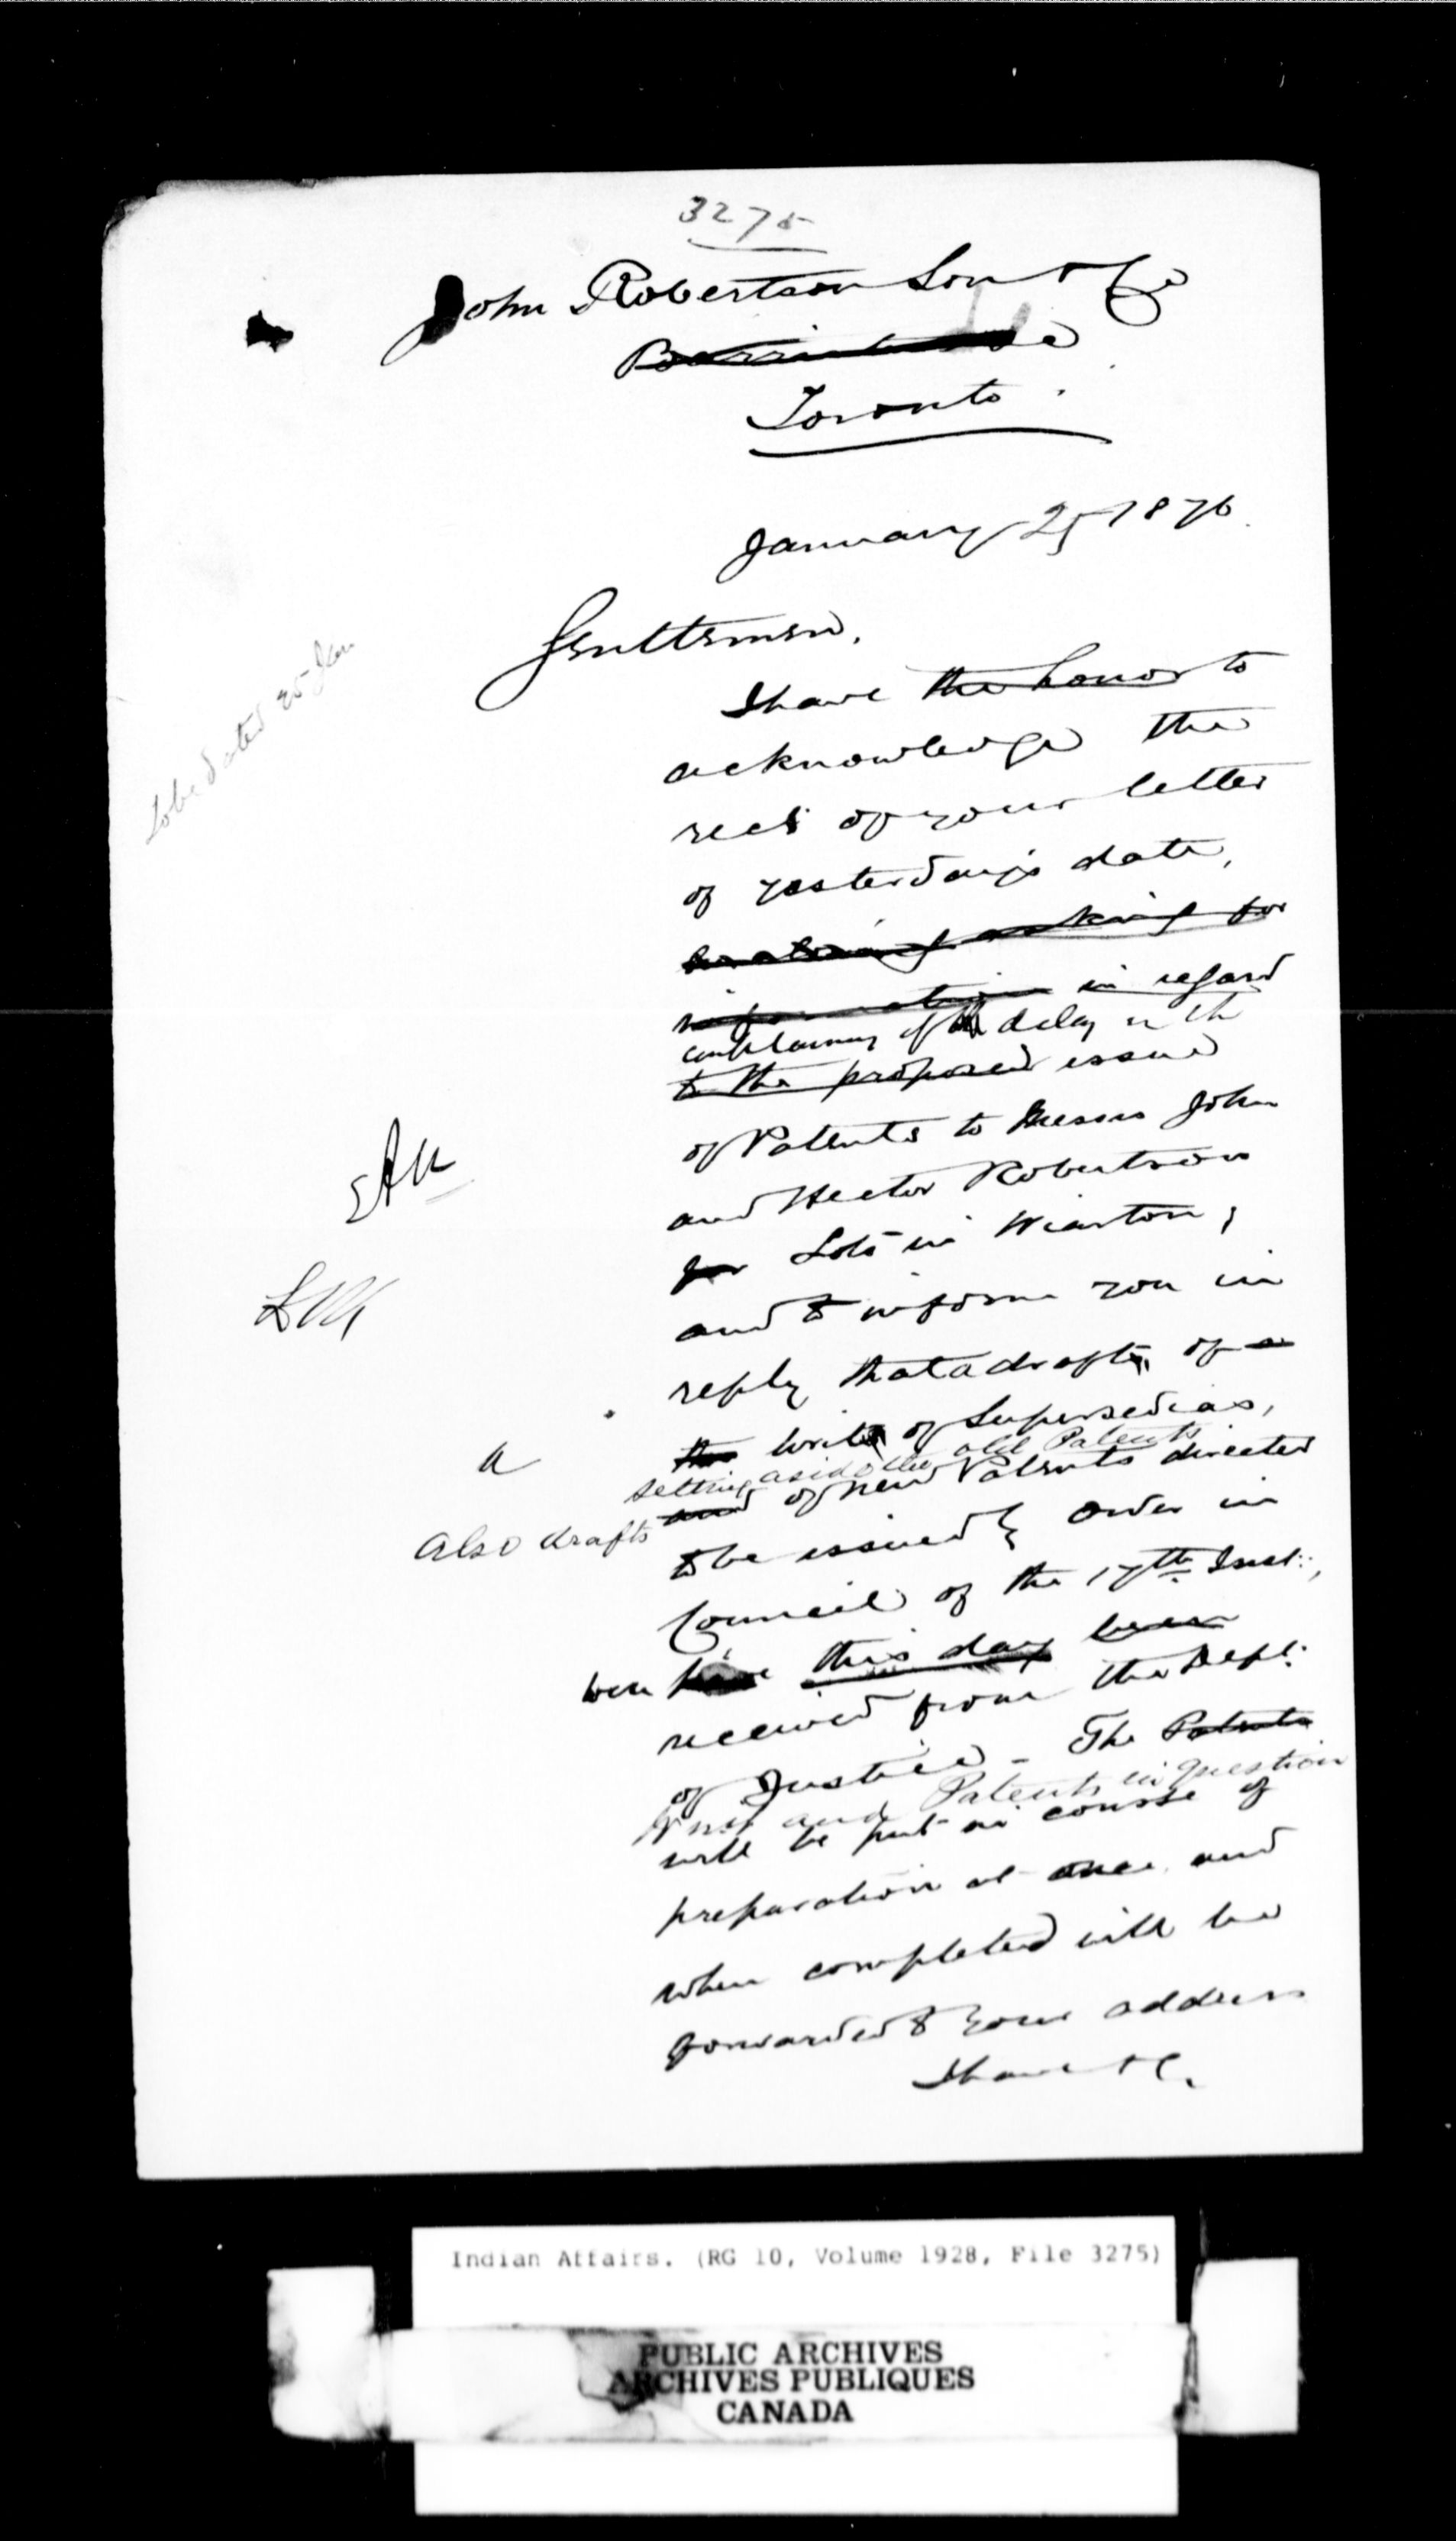 3275
John Robertson Son & Co
Toronto.
January 25 1876.
Gentlemen,
to be dated 25 Jan
I have the honor to
acknowledge the
rect of your letter
of yesterday's date,
asking for
information in regard
complaining of the delay in the
to the proposed issue
of Patents to Messrs John
and Hector Robertson
for Lots in Wiarton,
and to inform you in
reply that a draft of a
a
the writ of Supersedias,
setting aside the old Patents
also drafts and of new Patents directed
to be issued by Order in
Council of the 17th Inst:,
were have this day been
received from the Dept:
of Justice - The Patents
Writ and Patents in question
will be put in course of
preparation at once and
when completed will be
forwarded to your address
I have &c.
Indian Affairs. (RG 10, Volume 1928, File 3275)
PUBLIC ARCHIVES
ARCHIVES PUBLIQUES
CANADA